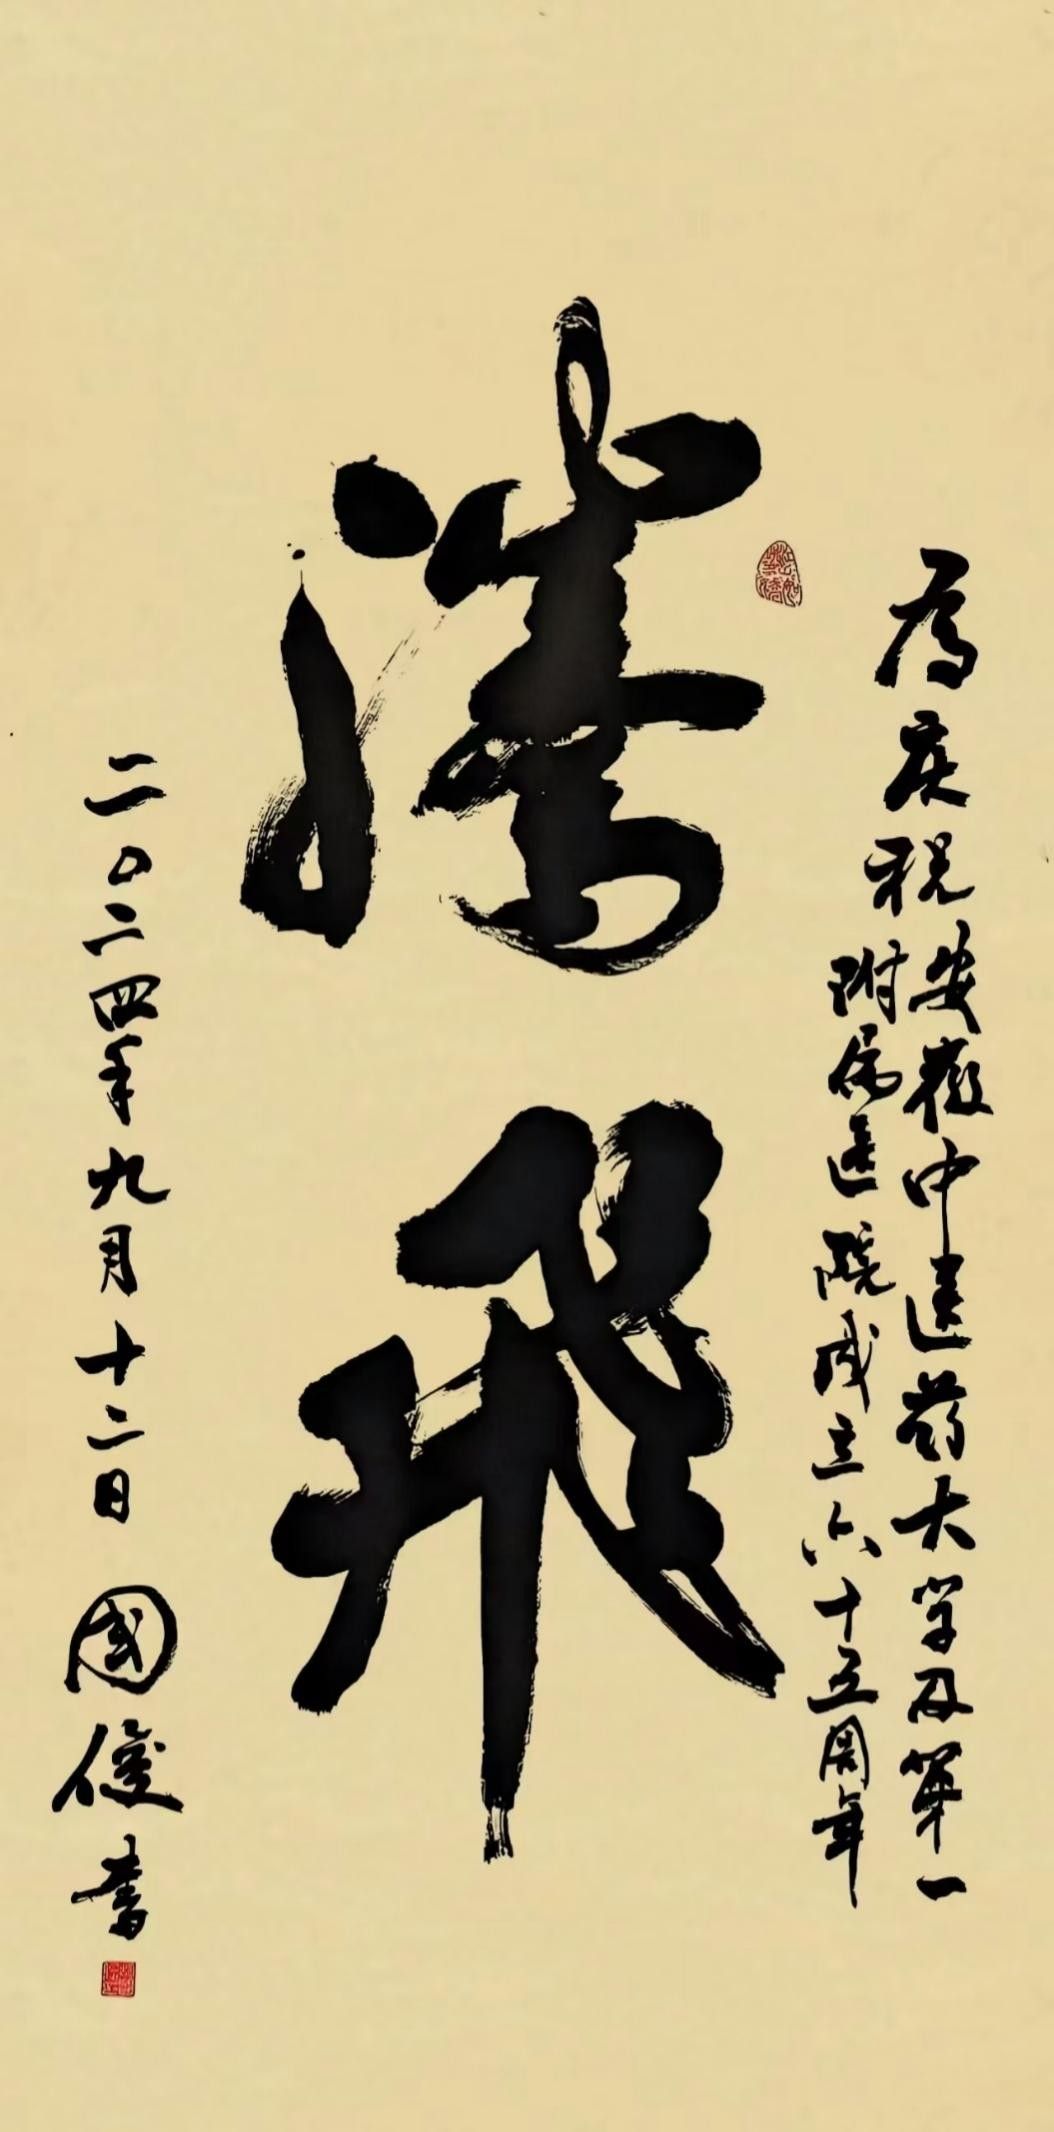 为庆祝安徽中医药大学及第一
附属医院成立六十五周年
腾飞
二〇二四年九月十二日 國俊書